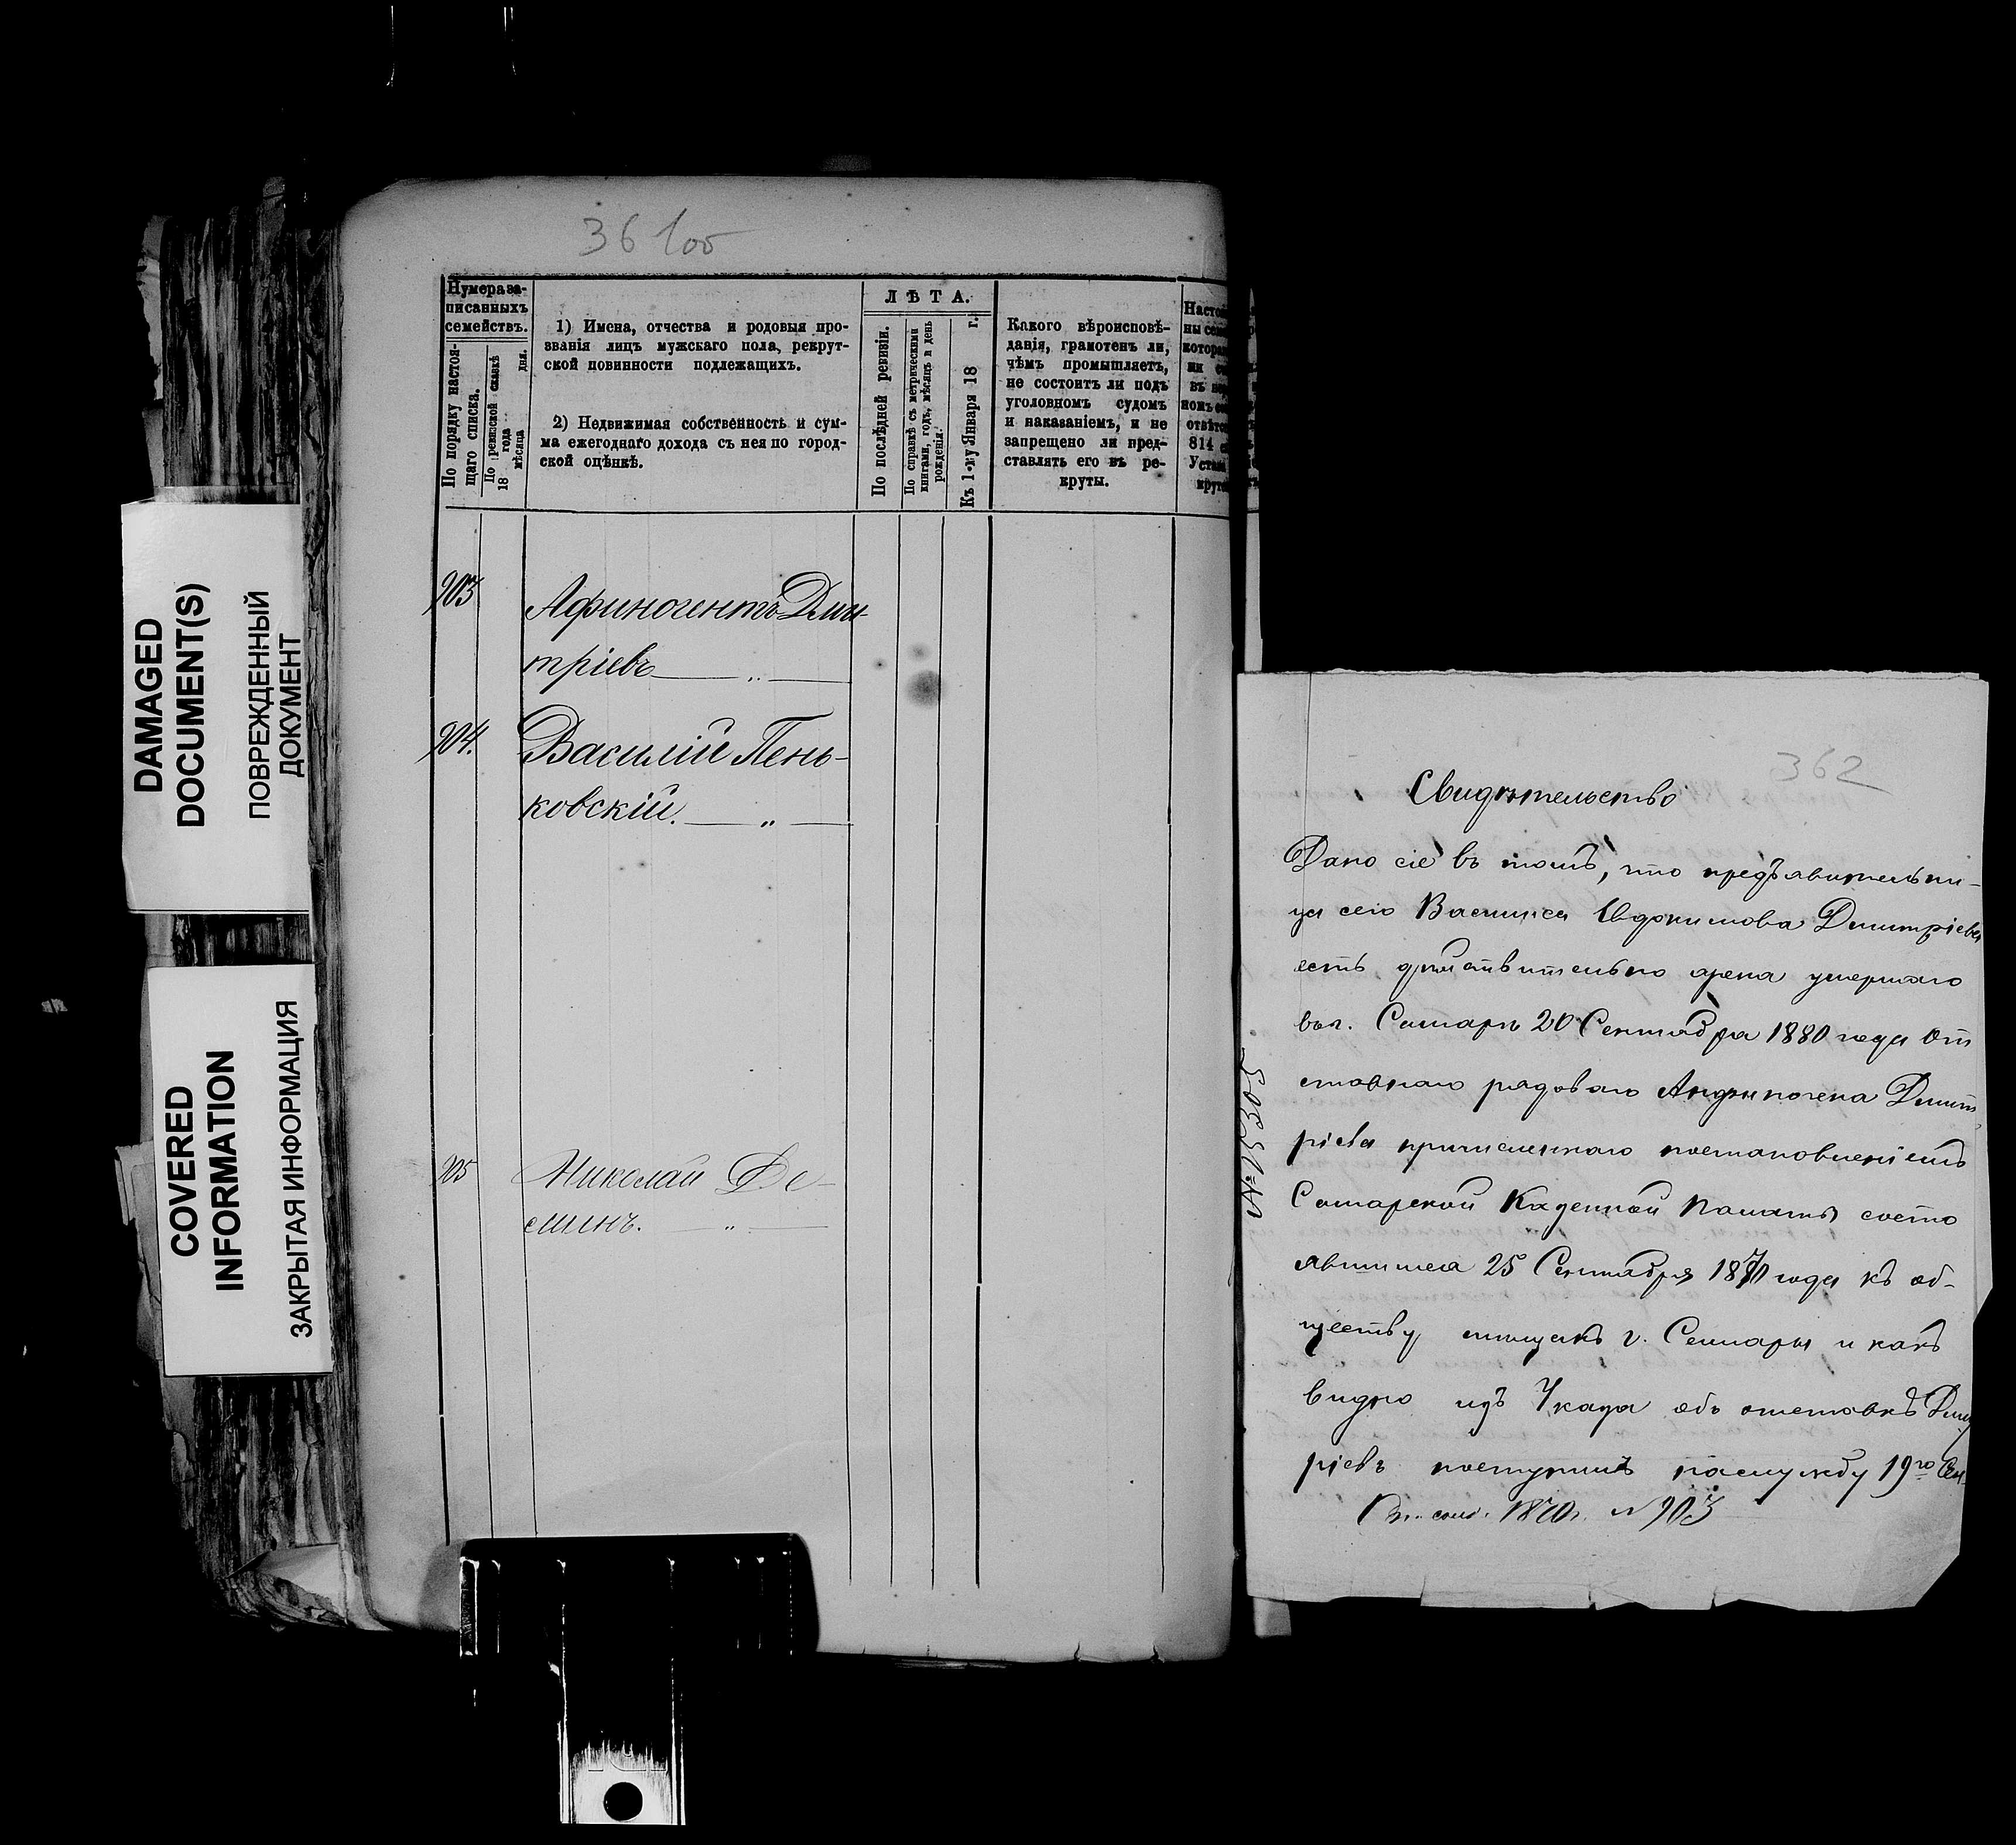 DAMAGED
DOCUMENT(S)
ПОВРЕЖДЕННЫЙ
ДОКУМЕНТ
COVERED
INFORMATION
ЗАКРЫТАЯ ИНФОРМАЦИЯ
361об
Нумера за-
писанныхъ
семействъ.
По порядку настоя-
щаго списка.
По ревизской сказкѣ
18 года
мѣсяца дня.
1) Имена, отчества и родовыя про-
званія лицъ мужскаго пола, рекрут-
ской повинности подлежащихъ.
2) Недвижимая собственность и сум-
ма ежегоднаго дохода съ нея по город-
ской оцѣнкѣ.
ЛѢТА.
По послѣдней ревизіи.
По справкѣ съ метрическими
книгами, годъ, мѣсяцъ и день
рожденія.
Къ 1-му Января 18 г.
Какого вѣроисповѣ-
данія, грамотенъ ли,
чѣмъ промышляетъ,
не состоитъ ли подъ
уголовномъ судомъ
и наказаніемъ, и не
запрещено ли пред-
ставлять его въ ре-
круты.
814
903 Афиногентъ Дми-
тріевъ — „ —
904. Василій Пень-
ковскій. — „ —
905 Николай Де-
минъ. — „ —
362
Свидѣтельство
Дано сіе въ томъ, что предъявительни-
ца сего Василиса Евдокимова Дмитріева
есть дѣйствительно жена умершаго
въ г. Самарѣ 20 Сентября 1880 года От
ставнаго рядоваго Анфиногена Дмит
ріева причисленнаго постановленіемъ
Самарской Казенной Палаты состо
явшимся 25 Сентября 1870 года къ об-
ществу мещанъ г. Самары и какъ
видно изъ Указа объ отставкѣ Дмит
ріевъ поступилъ на службу 19го Сен-
1870 г. № 903
№ 15305